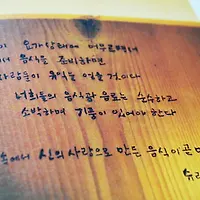 이 온기 상태에 머무르면서
서 음식을 준비하면
사람들이 유익을 얻을 것이다
너희들의 음식과 음료는 순수하고
소박하며 기품이 있어야 한다
속에서 신의 사랑으로 만든 음식이 곧
슈리